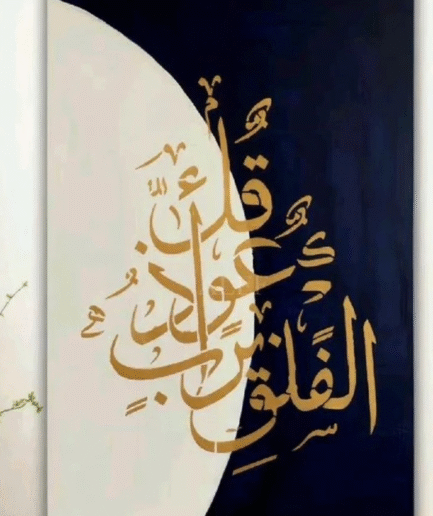 قُلْ
أَعُوذُ
بِرَبِّ
الْفَلَقِ